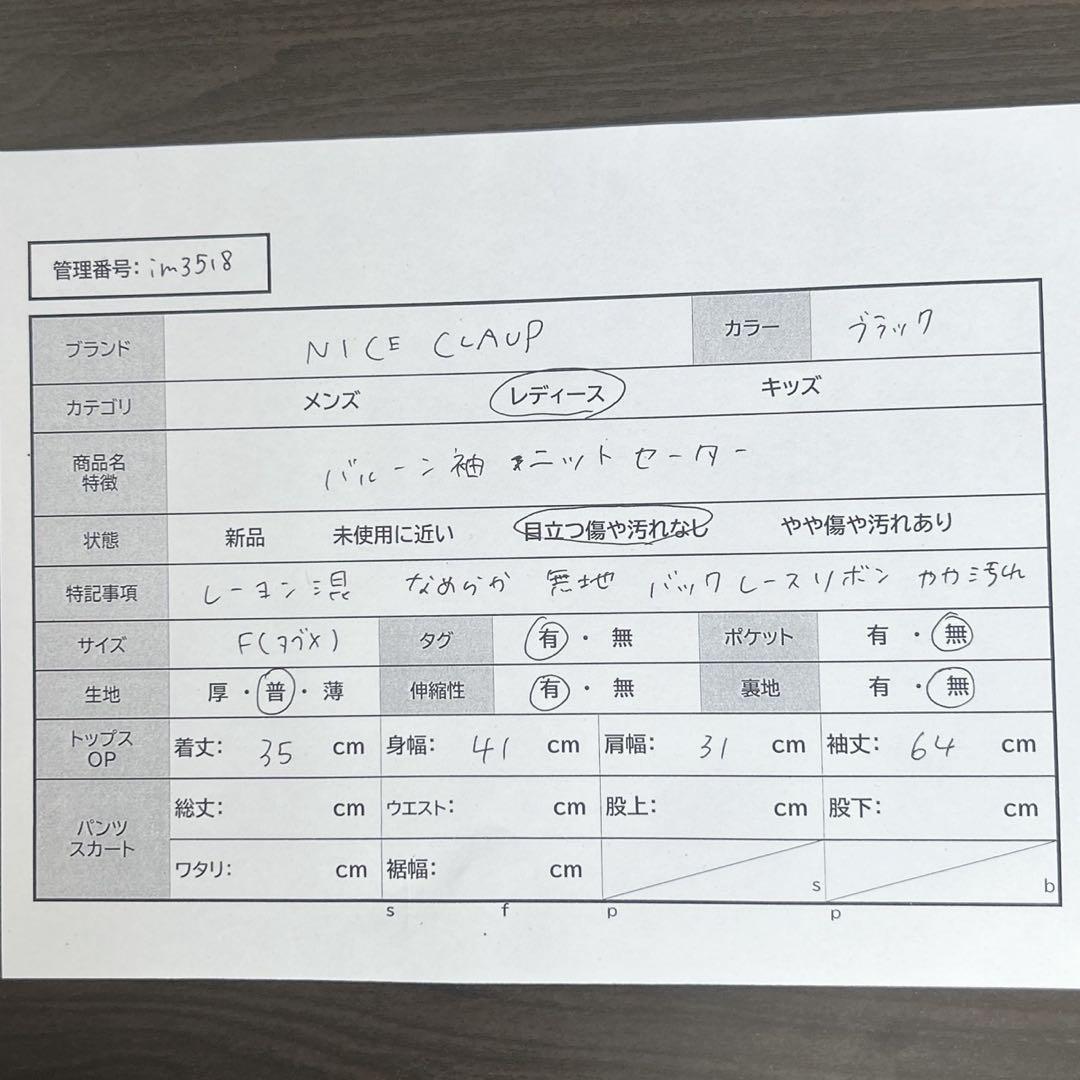 管理番号: im3518
ブランド NICE CLAUP カラー ブラック
カテゴリ メンズ レディース キッズ
商品名 特徴 バルーン袖 ニットセーター
状態 新品 未使用に近い 目立つ傷や汚れなし やや傷や汚れあり
特記事項 レーヨン混 なめらか 無地 バックレースリボン 汚れ
サイズ F(タグ) タグ 有 ・ 無 ポケット 有 ・ 無
生地 厚 ・ 普 ・ 薄 伸縮性 有 ・ 無 裏地 有 ・ 無
トップス OP 着丈: 35 cm 身幅: 41 cm 肩幅: 31 cm 袖丈: 64 cm
パンツ スカート 総丈: cm ウエスト: cm 股上: cm 股下: cm
ワタリ: cm 裾幅: cm s b
s f p p